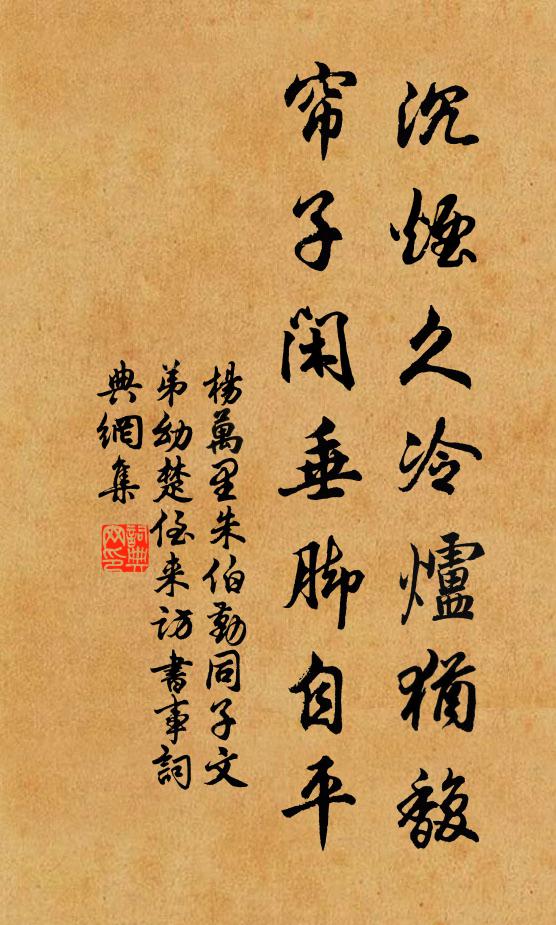 沉煙久冷爐猶馥
帘子閑垂脚自平
楊萬里朱伯勤同子文
弟幼楚侄来訪書事詞
典網集
詞典
网印